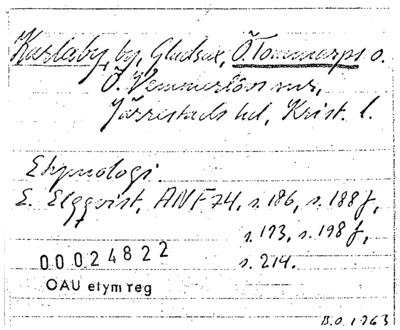 Karlaby, by, Gladsax, Ö. Tommarps o.
Ö. Vemmerlövs snr,
Järrestads hd, Krist. l.
Etymologi.
E. Elgqvist, ANF 74, s. 186, s. 188 f,
s. 193, s. 198 f,
s. 214.
00024822
OAU etym reg
B.O. 1963